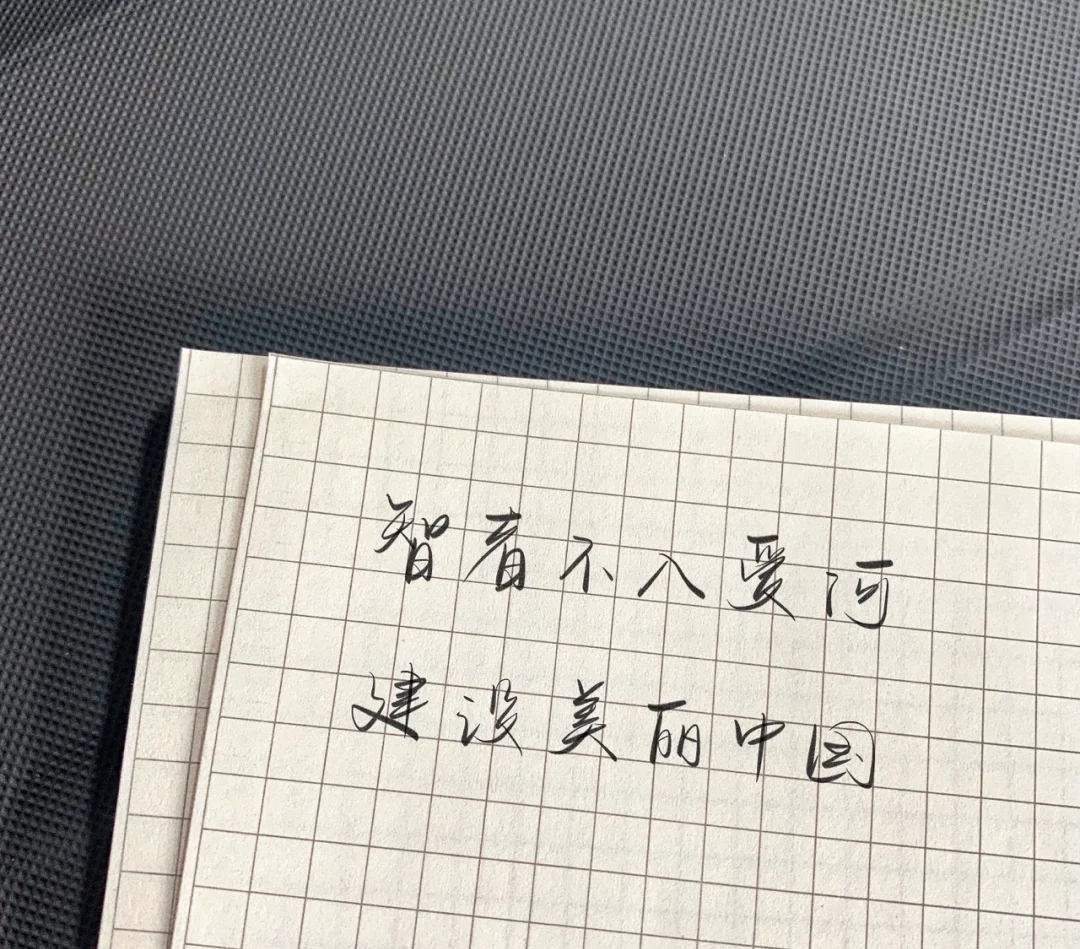 智者不入爱河
建设美丽中国